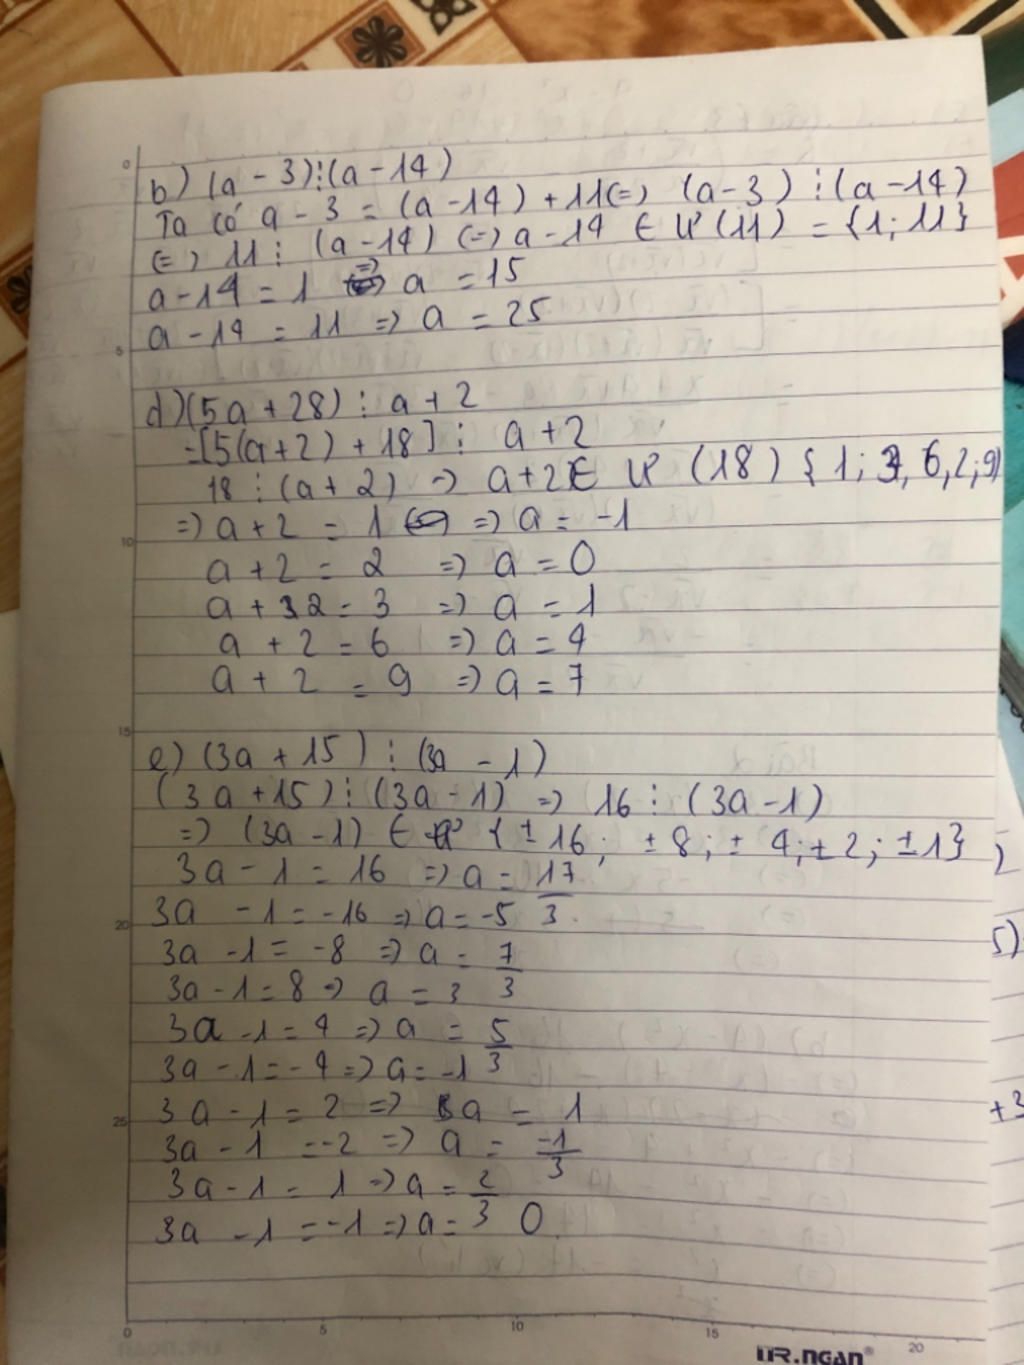 b) (a - 3)⋮(a - 14)
Ta có a - 3 = (a - 14) + 11 (=) (a - 3) ⋮ (a - 14)
(=) 11 ⋮ (a - 14) (=) a - 14 ∈ Ư (11) = {1; 11}
a - 14 = 1 => a = 15
a - 14 = 11 => a = 25
d) (5a + 28) ⋮ a + 2
= [5(a+2) + 18] ⋮ a + 2
18 ⋮ (a + 2) => a + 2 ∈ Ư (18) { 1; 3, 6, 2; 9}
=> a + 2 = 1 => a = -1
a + 2 = 2 => a = 0
a + 2 = 3 => a = 1
a + 2 = 6 => a = 4
a + 2 = 9 => a = 7
e) (3a + 15) ⋮ (3a - 1)
(3a + 15) ⋮ (3a - 1) => 16 ⋮ (3a - 1)
=> (3a - 1) ∈ { ±16; ±8; ±4; ±2; ±1}
3a - 1 = 16 => a = 17/3
3a - 1 = -16 => a = -5
3a - 1 = -8 => a = 7/3
3a - 1 = 8 => a = 3
3a - 1 = 4 => a = 5/3
3a - 1 = -4 => a = -1
3a - 1 = 2 => a = 1
3a - 1 = -2 => a = -1/3
3a - 1 = 1 => a = 2/3
3a - 1 = -1 => a = 0
5)
+3
0
5
10
15
20
25
0 5 10 15 20
MR.NGAN®